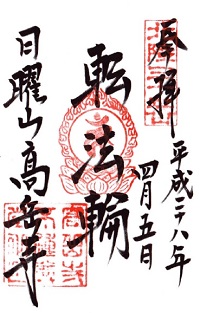 奉拝
平成二十八年
四月五日
転法輪
日曜山高岳寺